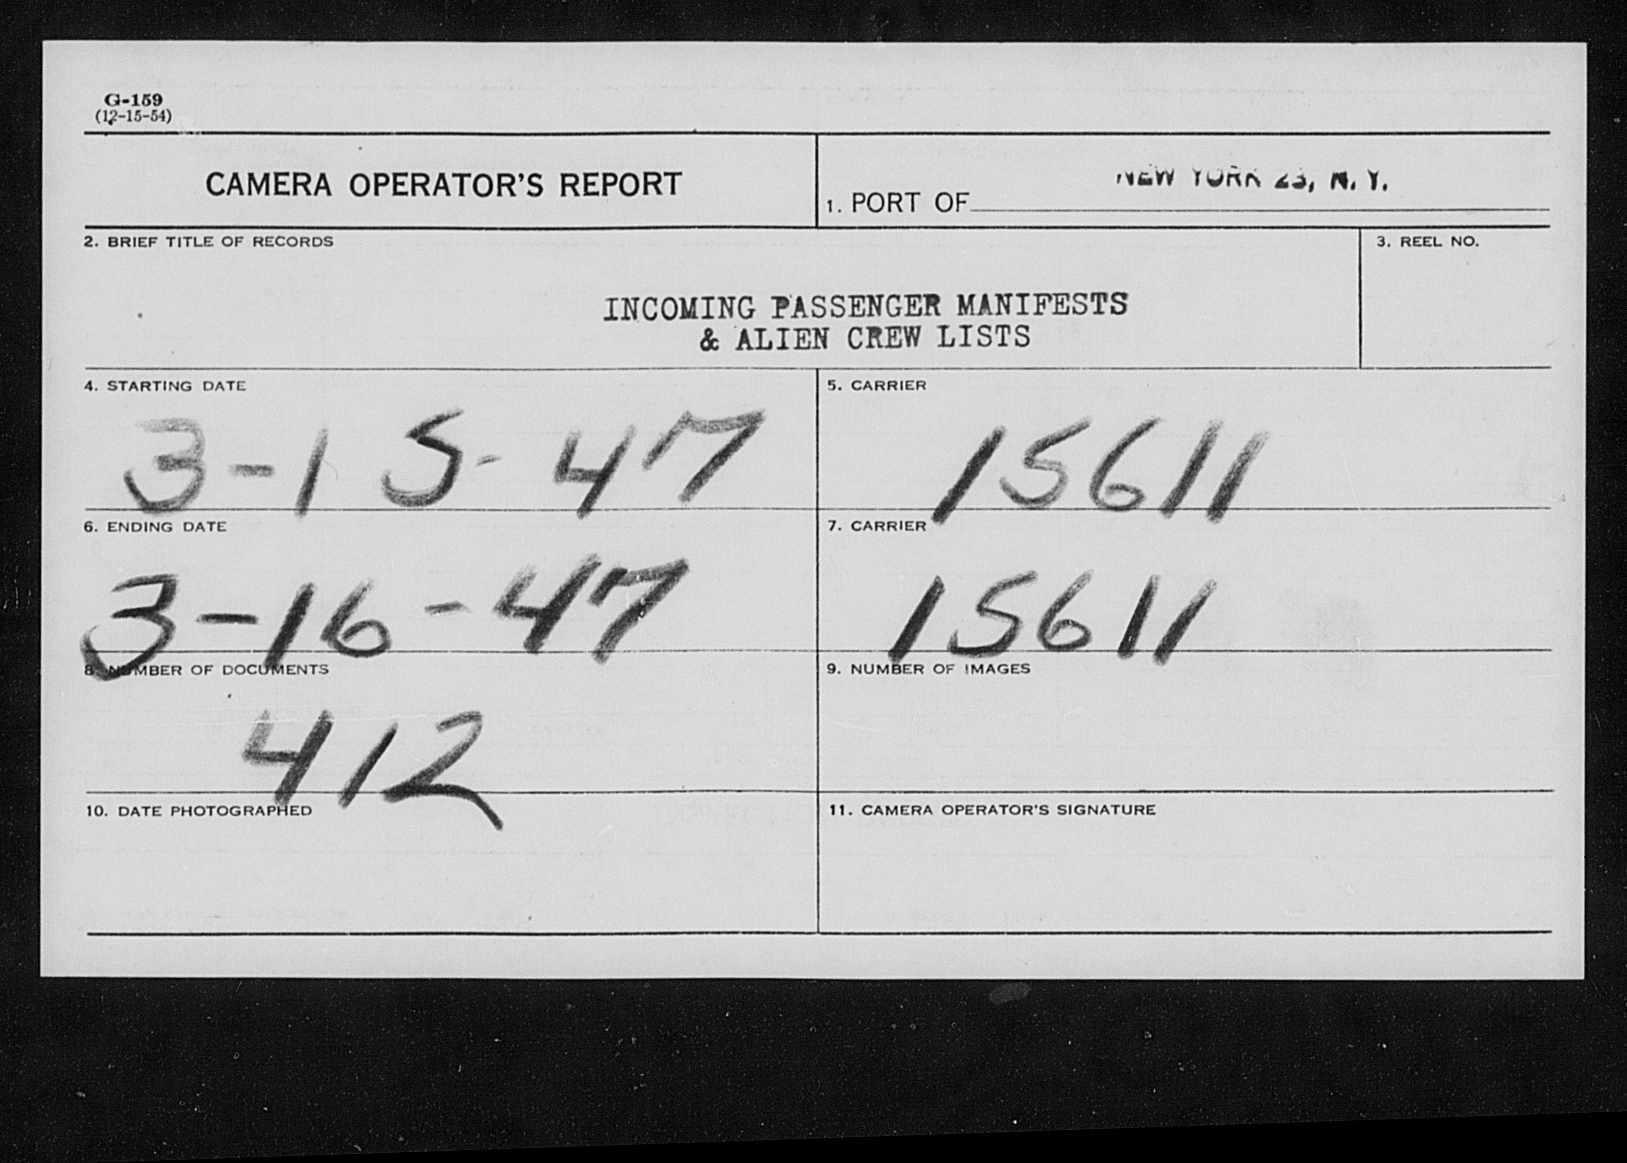 G-159
(12-15-54)
CAMERA OPERATOR'S REPORT
1. PORT OF NEW YORK 23, N. Y.
2. BRIEF TITLE OF RECORDS
3. REEL NO.
INCOMING PASSENGER MANIFESTS
& ALIEN CREW LISTS
4. STARTING DATE
3-15-47
5. CARRIER
15611
6. ENDING DATE
3-16-47
7. CARRIER
15611
8. NUMBER OF DOCUMENTS
412
9. NUMBER OF IMAGES
10. DATE PHOTOGRAPHED
11. CAMERA OPERATOR'S SIGNATURE